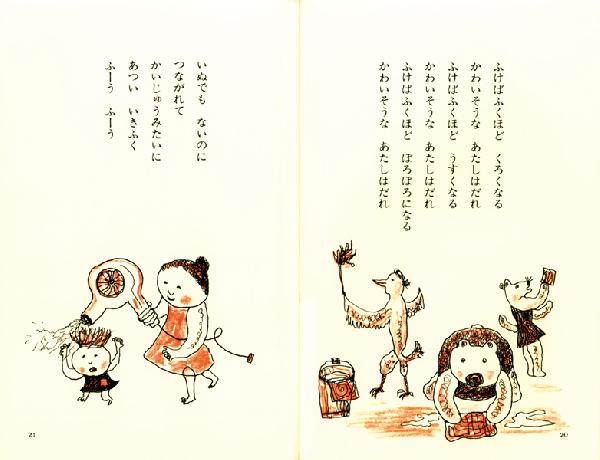 ふけばふくほど　くろくなる
かわいそうな　あたしはだれ
ふけばふくほど　うすくなる
かわいそうな　あたしはだれ
ふけばふくほど　ぼろぼろになる
かわいそうな　あたしはだれ
20
いぬでも　ないのに
つながれて
かいじゅうみたいに
あつい　いきふく
ふーう　ふーう
21